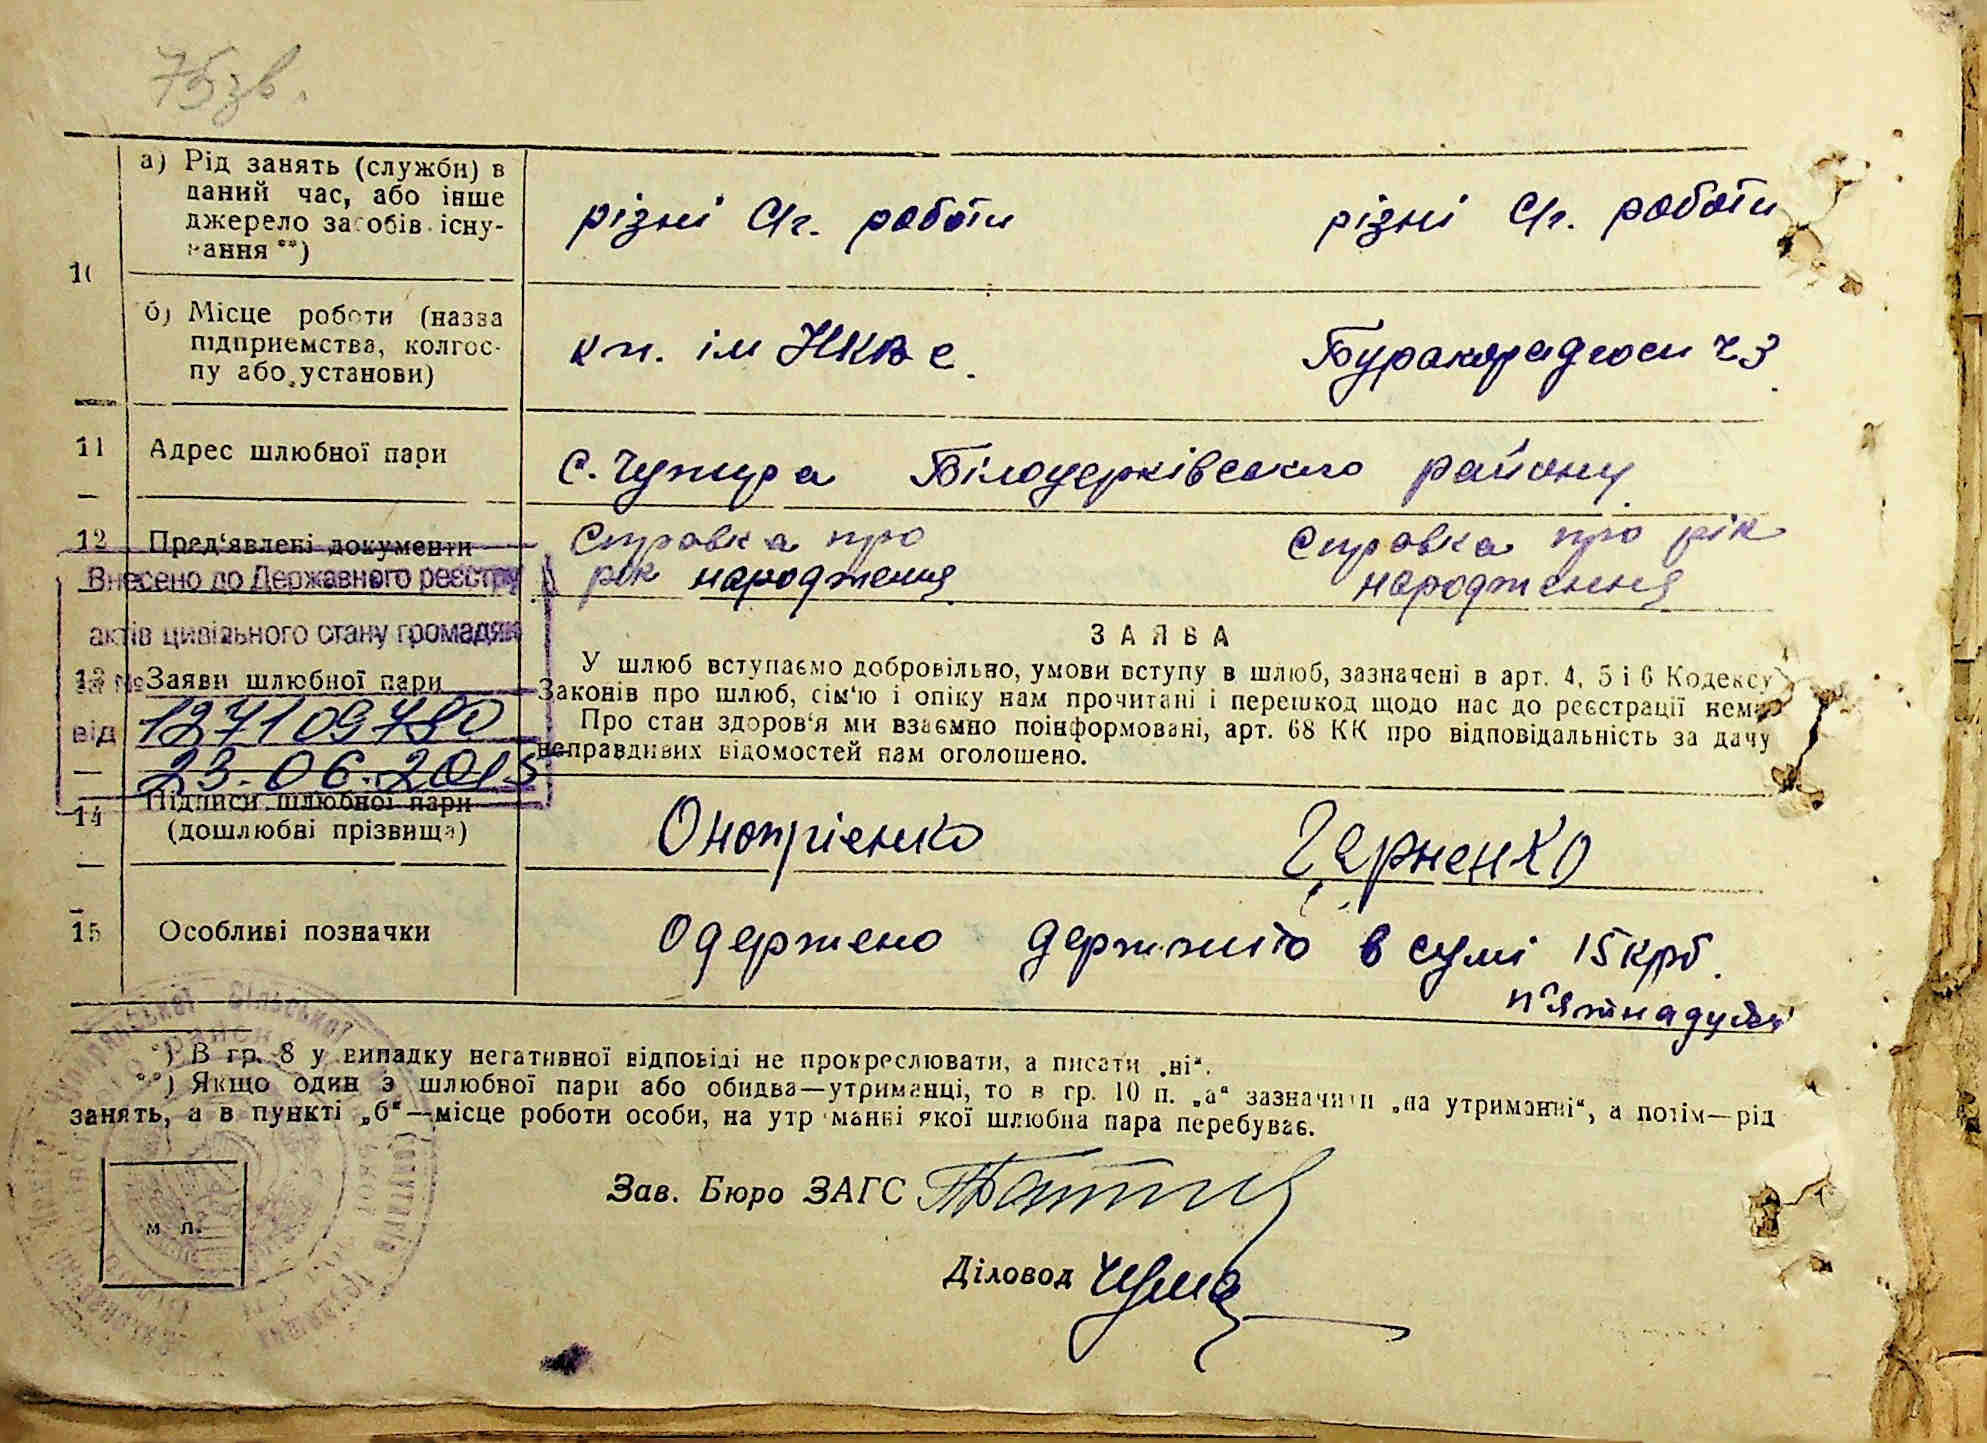 75 зв.
10
а) Рід занять (служби) в
даний час, або інше
джерело засобів існу-
вання **)
різні с/г. роботи
різні с/г. роботи
б) Місце роботи (назва
підприємства, колгос-
пу або установи)
кп. ім НКВС
Бурякорадгосп ч3
11 Адрес шлюбної пари
с. Чупира Білоцерківського району
12 Пред'явлені документи
Справка про
рік народження
Справка про рік
народження
Внесено до Державного реєстру
актів цивільного стану громадян
за №
127109780
від
23.06.2015
13 Заяви шлюбної пари
ЗАЯВА
У шлюб вступаємо добровільно, умови вступу в шлюб, зазначені в арт. 4, 5 і 6 Кодексу
Законів про шлюб, сім'ю і опіку нам прочитані і перешкод щодо нас до реєстрації нема
Про стан здоров'я ми взаємно поінформовані, арт. 68 КК про відповідальність за дачу
неправдивих відомостей нам оголошено.
14 Підписи шлюбної пари
(дошлюбні прізвища)
Онопрієнко
Черненко
15 Особливі позначки
Одержено держмито в сумі 15 крб.
п'ятнадцять
*) В гр. 8 у випадку негативної відповіді не прокреслювати, а писати „ні“.
**) Якщо один з шлюбної пари або обидва—утриманці, то в гр. 10 п. „а“ зазначити „на утриманні“, а потім—рід
занять, а в пункті „б“—місце роботи особи, на утриманні якої шлюбна пара перебуває.
Зав. Бюро ЗАГС
м п.
Діловод Чума